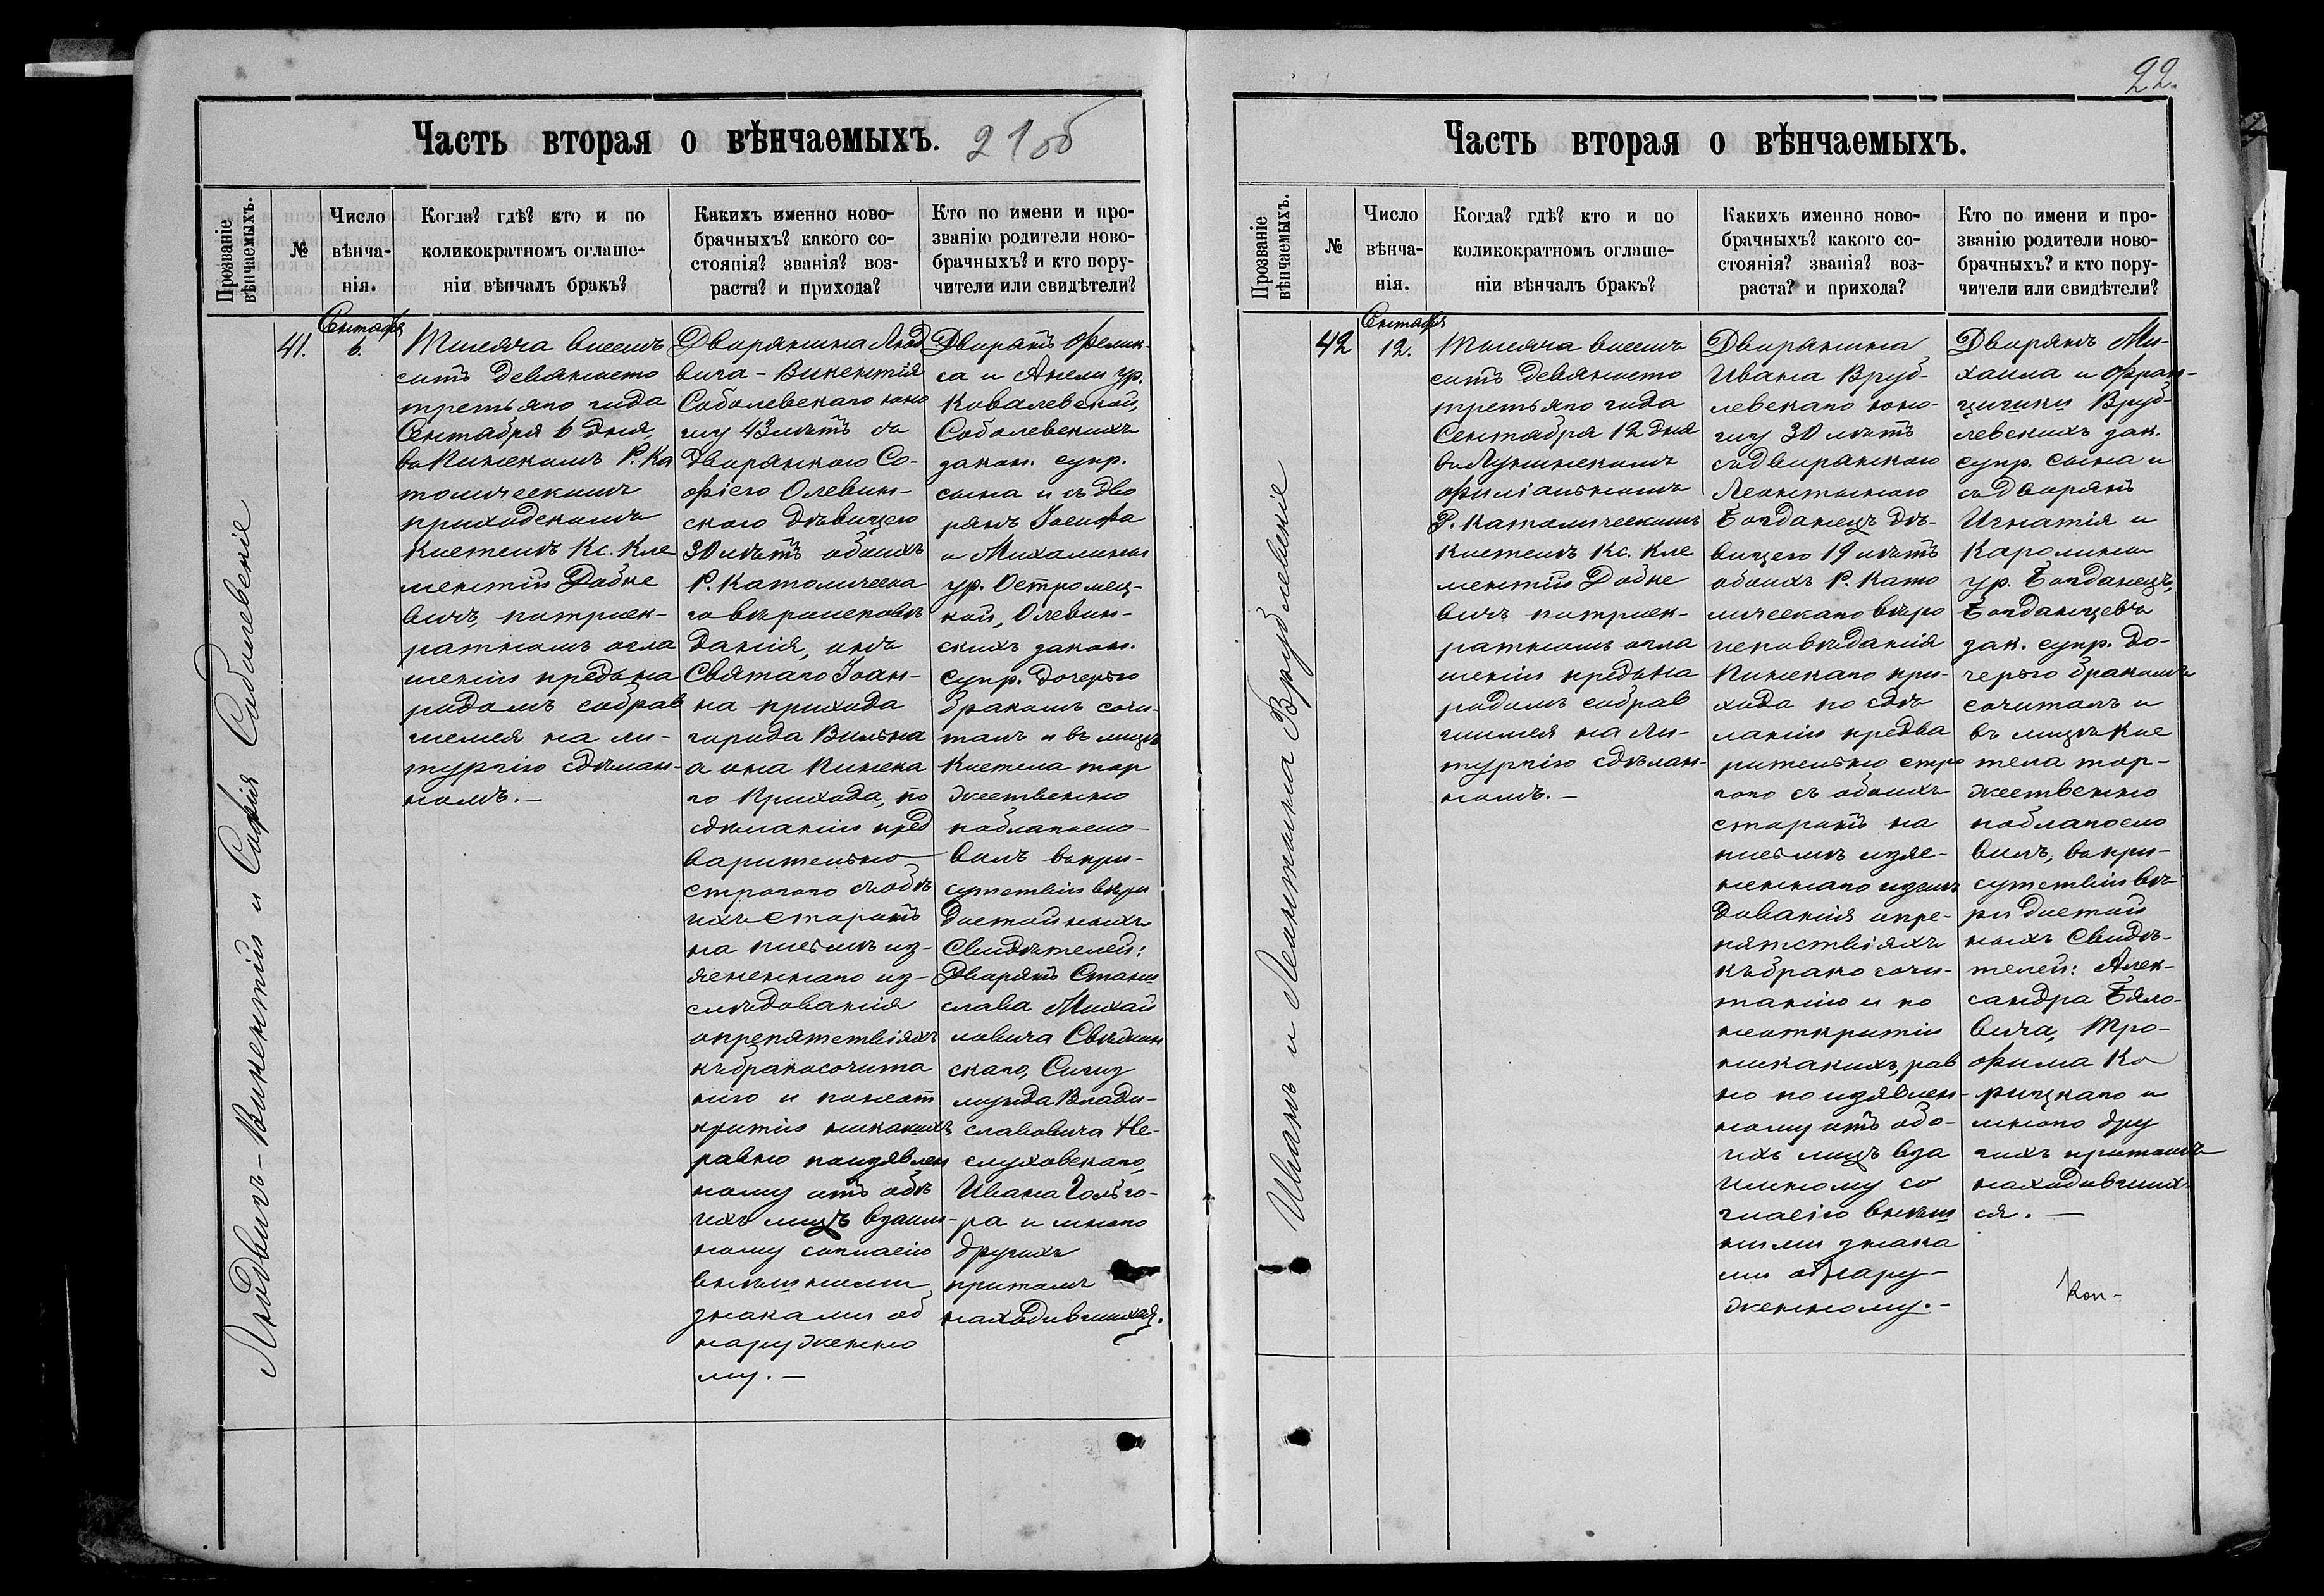 22.
Часть вторая о вѣнчаемыхъ. 21об
Прозваніе вѣнчаемыхъ.
№
Число вѣнча-нія.
Когда? гдѣ? кто и по
коликократномъ оглаше-
ніи вѣнчалъ бракъ?
Какихъ именно ново-
брачныхъ? какого со-
стоянія? званія? воз-
раста? и прихода?
Кто по имени и про-
званію родители ново-
брачныхъ? и кто пору-
чители или свидѣтели?
Людвигъ-Викентій и Софія Соболевскіе
41.
Сентября
6.
Тысяча восемь
сотъ девяносто
третьяго года
Сентября 6 дня,
въ Пинскомъ Р. Ка
толическомъ
приходскомъ
костелѣ Кс. Кле
ментій Добке
вичъ, потроек-
ратномъ огла
шеніи предъ на
родомъ собрав
шемся на ли-
тургію сдѣлан-
номъ.—
Дворянина Люд
вига-Викентія
Соболевскаго юно
шу 43 лѣтъ съ
Дворянкою Со-
фіею Олевин-
скою дѣвицею
30 лѣтъ обоихъ
Р. Католическа
го вѣроисповѣ
данія, онъ
Святаго Іоан-
на прихода
города Вильна
а она Пинска
го прихода, по
сдѣланіи пред
варительно
строгаго съ обѣ
ихъ сторонъ
на письмѣ из-
ясненнаго из-
слѣдованія
о препятствіяхъ
къ бракосочета
нію и по неот
крытіи никакихъ
равно по изявлен
ному отъ обѣ
ихъ лицъ взаим-
ному согласію
внѣшними
знаками об
наруженно
му.—
Дворянъ Феликс-
са и Анели ур.
Ковалевской,
Соболевскихъ
закон. супр.
сына и съ дво
рянъ Іосифа
и Михалины
ур. Островец-
кой, Олевин-
скихъ закон.
супр. дочерью
бракомъ соче-
талъ и въ лицѣ
костела тор
жественно
поблагосло-
вилъ въ при-
сутствіи вѣри
достойныхъ
Свидѣтелей:
Дворянъ Стани
слава Михай
ловича Свѣдзин
скаго, Сигиз
мунда Влади-
славовича Не-
слуховскаго,
Ивана Гольго-
ра и много
другихъ
притомъ
находившихся.
Часть вторая о вѣнчаемыхъ.
Прозваніе вѣнчаемыхъ.
№
Число вѣнча-нія.
Когда? гдѣ? кто и по
коликократномъ оглаше-
ніи вѣнчалъ бракъ?
Какихъ именно ново-
брачныхъ? какого со-
стоянія? званія? воз-
раста? и прихода?
Кто по имени и про-
званію родители ново-
брачныхъ? и кто пору-
чители или свидѣтели?
Иванъ и Леонтына Врублевскіе
42
Сентября
12.
Тысяча восемь
сотъ девяносто
третьяго года
Сентября 12 дня
въ Лунинскомъ
Филіальномъ
Р. Католическомъ
костелѣ Кс. Кле
ментій Добке
вичъ потроек-
ратномъ огла
шеніи предъ на
родомъ собрав
шимся на ли-
тургію сдѣлан-
номъ.—
Дворянина
Ивана Вруб-
левскаго юно-
шу 30 лѣтъ
съ дворянкою
Леонтыною
Богданецъ дѣ-
вицею 19 лѣтъ
обоихъ Р. Като
лическаго вѣро
исповѣданія
Пинскаго при-
хода по сдѣ
ланіи предва
рительно стро
гаго съ обоихъ
сторонъ на
письмѣ изяс-
неннаго изслѣ
дованія о пре-
пятствіяхъ
къ брако соче-
танію и по
неоткрытіи
никакихъ, рав
но по изявлен-
ному отъ обо-
ихъ лицъ вза
имному со
гласію внѣш
ними знака
ми обнару-
женному.—
Дворянъ Ми-
хаила и Фран-
цишки Вруб-
левскихъ зак.
супр. сына и
съ дворянъ
Игнатія и
Каролины
ур. Богданецъ,
Богданцевъ
зак. супр. до-
черью бракомъ
сочеталъ и
въ лицѣ кос
тела тор-
жественно
поблагосло
вилъ, въ при-
сутствіи вѣ
ри достой
ныхъ Свидѣ-
телей: Алек-
сандра Бяло-
вича, Тро-
фима Ко
рицкаго и
много дру
гихъ притомъ
находивших-
ся.—
Коп-